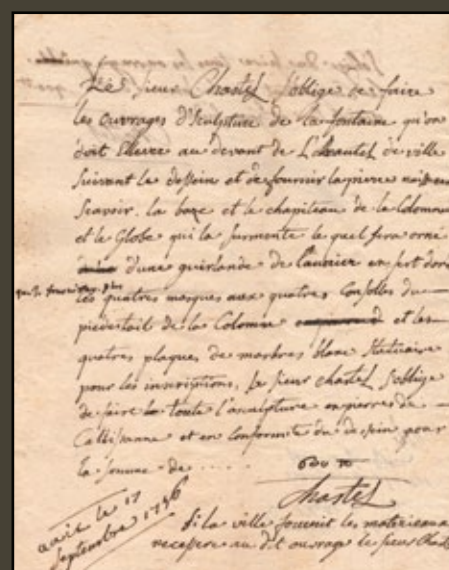 Le Sieur Chastel s'oblige de faire
les ouvrages d'Sculpture de la fontaine qu'on
doit Ellever au devant de L'hautel de ville
suivant le dessein et de fournir la pierre
Scavoir. la baze et le chapiteau de la Colomne
et le Globe qui la surmonte le quel sera orné
d'une guirlande de laurier en fert doré
les quatres masques aux quatres Consolles du
piedestail de la Colomne et les
quatres plaques de marbres blanc Statuaire
pour les inscriptions, Le sieur chastel s'oblige
de faire toute l'ansculpture en pierre de
Calissanne et en conformité du dessein pour
la somme de .....
Chastel
aaix le 17
septembre 1756
Si la ville fournit les materieaux
au dit ouvrage le sieur Chast